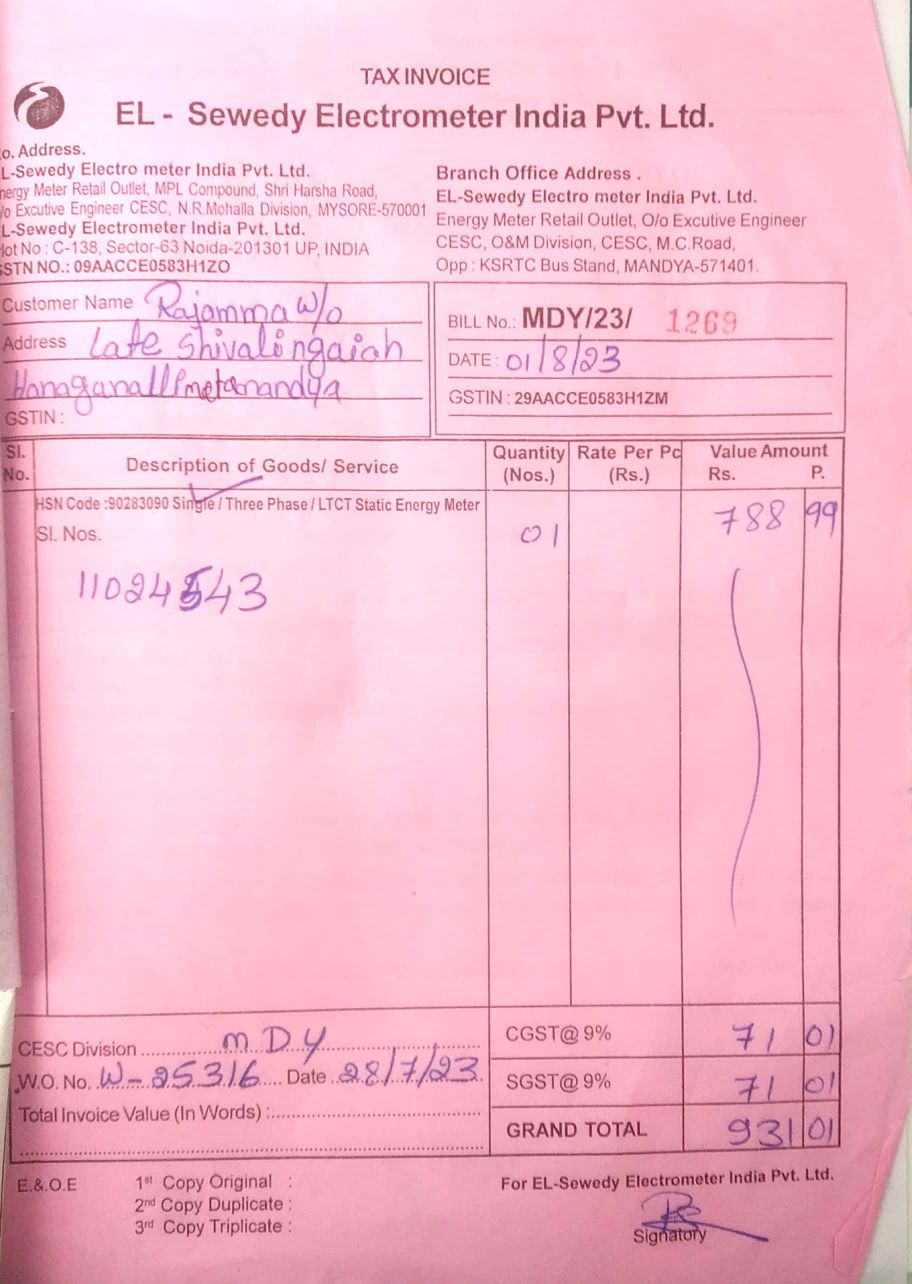 TAX INVOICE
EL - Sewedy Electrometer India Pvt. Ltd.
o. Address.
L-Sewedy Electro meter India Pvt. Ltd.
nergy Meter Retail Outlet, MPL Compound, Shri Harsha Road,
/o Excutive Engineer CESC, N.R.Mohalla Division, MYSORE-570001
L-Sewedy Electrometer India Pvt. Ltd.
lot No : C-138, Sector-63 Noida-201301 UP, INDIA
STN NO.: 09AACCE0583H1ZO
Branch Office Address .
EL-Sewedy Electro meter India Pvt. Ltd.
Energy Meter Retail Outlet, O/o Excutive Engineer
CESC, O&M Division, CESC, M.C.Road,
Opp : KSRTC Bus Stand, MANDYA-571401.
Customer Name Rajamma w/o
Address Late Shivalingaiah
GSTIN :
BILL No.: MDY/23/ 1269
DATE : 01/8/23
GSTIN : 29AACCE0583H1ZM
Sl. No. Description of Goods/ Service Quantity (Nos.) Rate Per Pc (Rs.) Value Amount Rs. P.
HSN Code :90283090 Single / Three Phase / LTCT Static Energy Meter
Sl. Nos. 01 788 99
11024543
CESC Division MDY CGST@ 9% 71 01
W.O. No. W-25316 Date 28/7/23 SGST@ 9% 71 01
Total Invoice Value (In Words) :
GRAND TOTAL 931 01
E.&.O.E 1st Copy Original :
2nd Copy Duplicate :
3rd Copy Triplicate :
For EL-Sewedy Electrometer India Pvt. Ltd.
Signatory